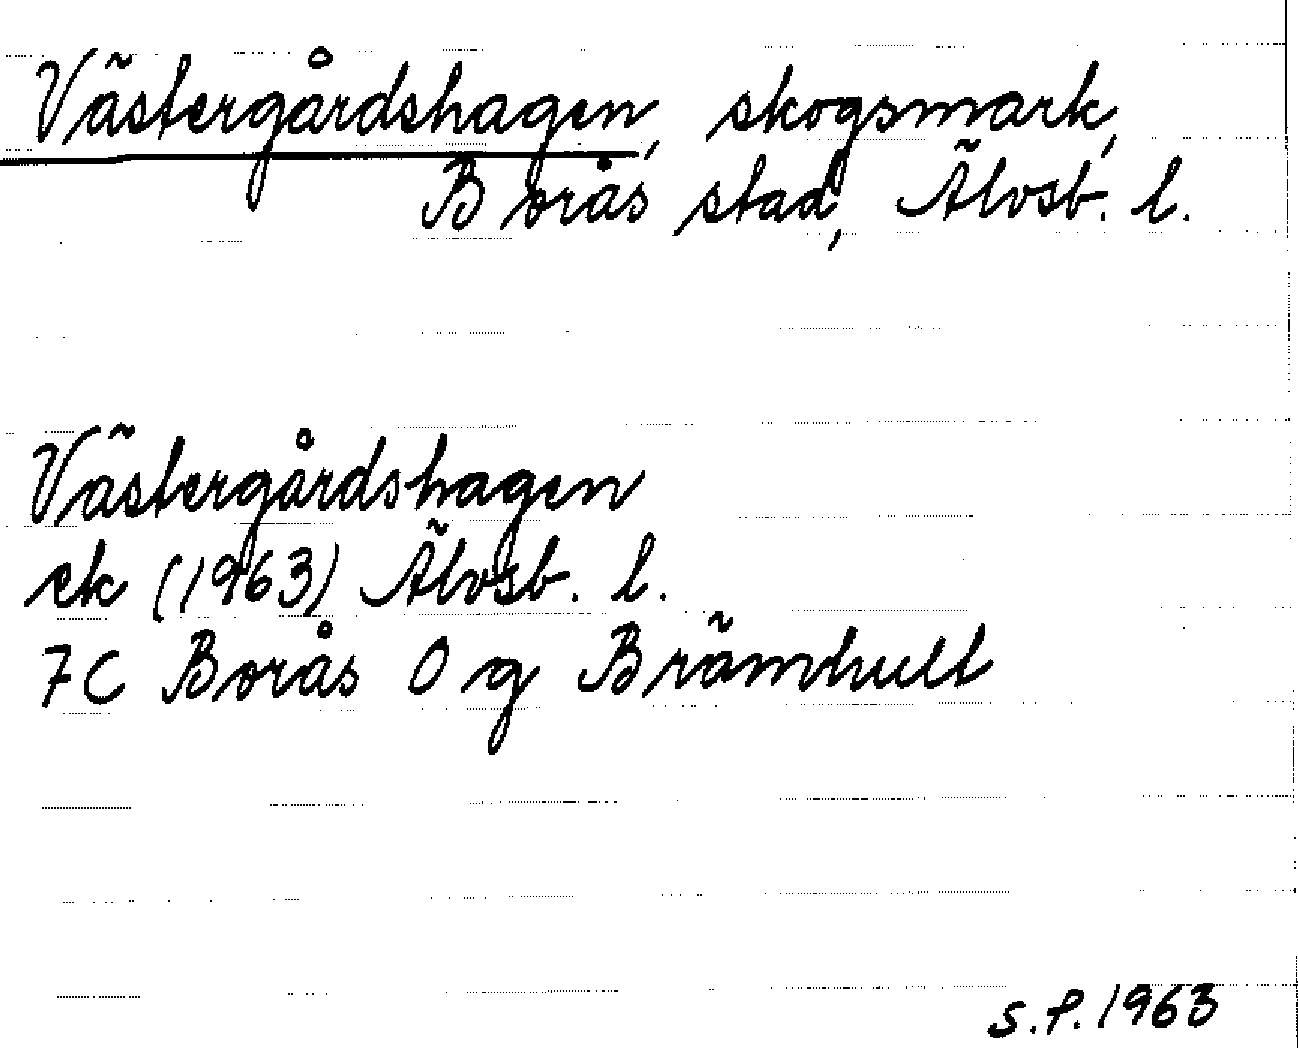 Västergårdshagen, skogsmark,
Borås stad, Älvsb. l.
Västergårdshagen
ek (1963) Älvsb. l.
7C Borås O g Brämhult
S.P. 1963